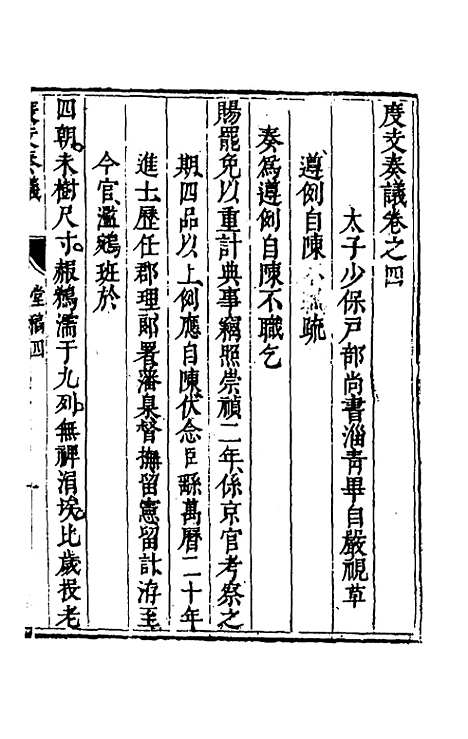 度支奏議卷之四
太子少保戶部尚書淄青畢自嚴視草
遵例自陳不職疏
奏爲遵例自陳不職乞
賜罷免以重計典事竊照崇禎二年係京官考察之
期四品以上例應自陳伏念臣繇萬曆二十年
進士歷任郡理郎署藩臬督撫留憲留計洊至
今官濫鵷班於
四朝未樹尺寸赧鵜濡于九列無裨涓埃比歲投老
度支奏議
堂稿四